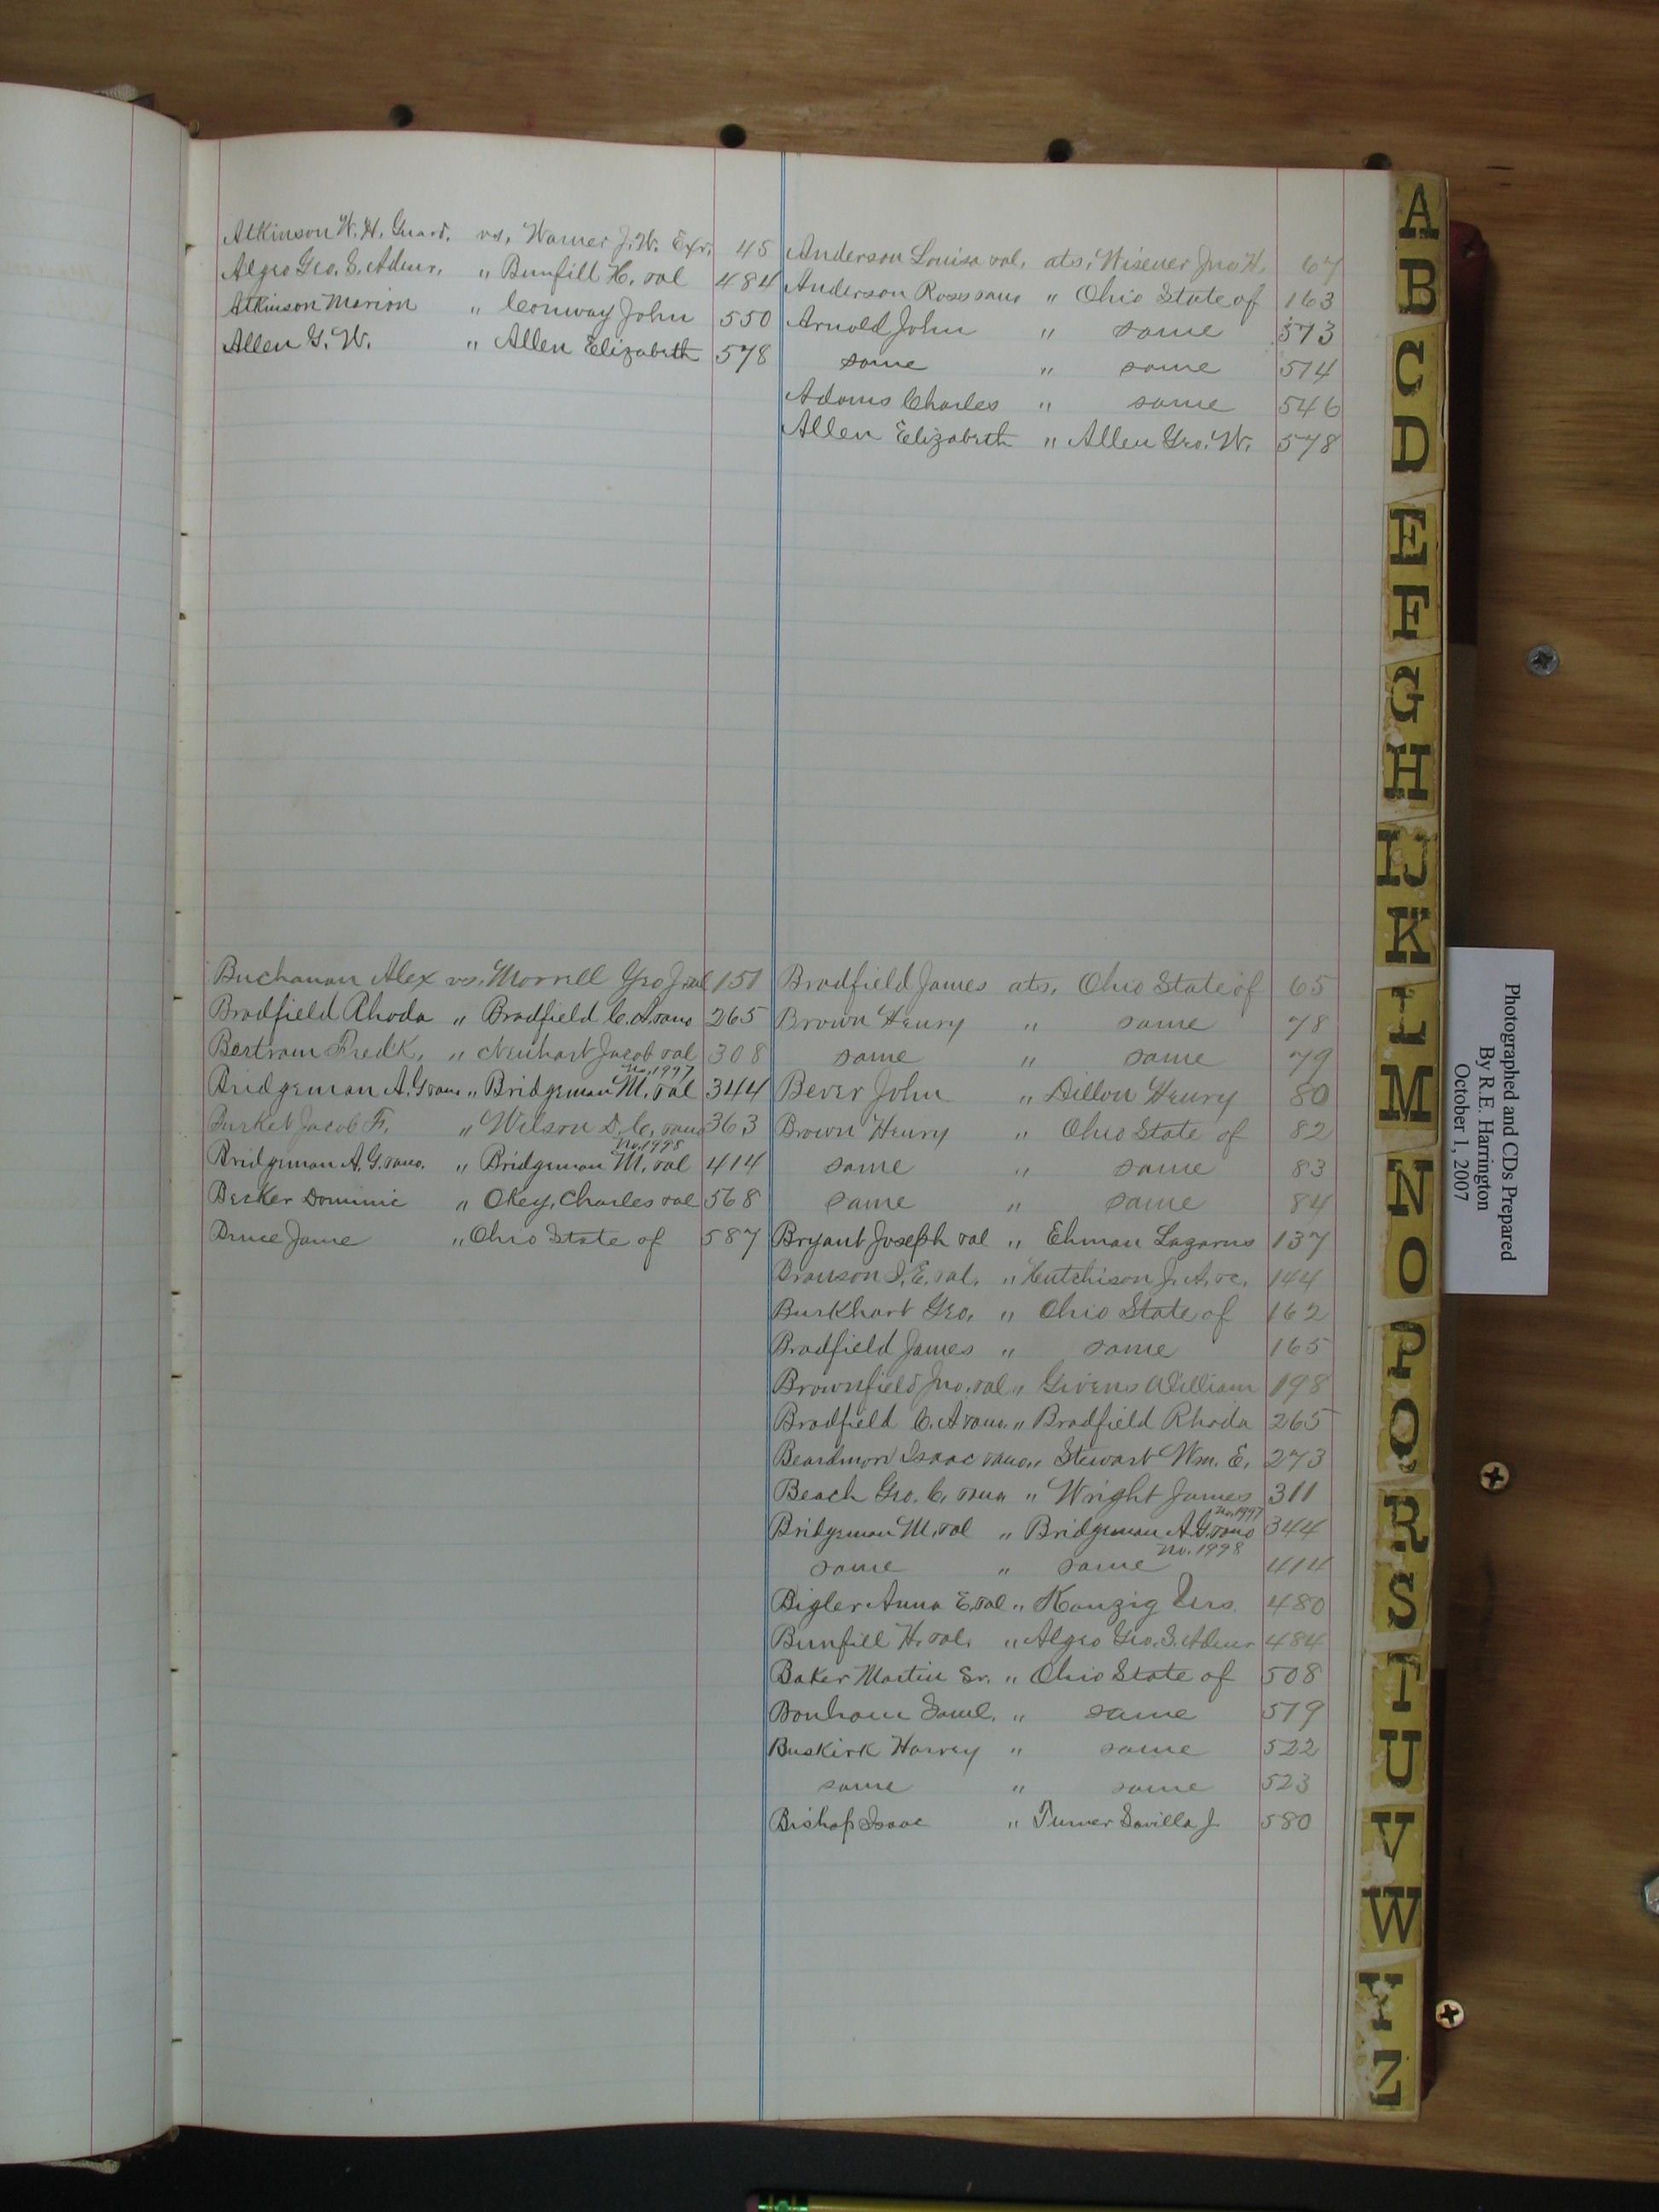 Atkinson W. H. Guard. vs. Warner J. W. Exr. 45
Algeo Geo. S. Admr. " Bunfill H. et al 484
Atkinson Marion " Conway John 550
Allen G. W. " Allen Elizabeth 578
Anderson Louisa et al. ats. Wisener Jno H. 67
Anderson Ross " Ohio State of 163
Arnold John " same 513
same " same 514
Adams Charles " same 546
Allen Elizabeth " Allen Geo. W. 578
Buchanan Alex vs. Morrell Geo J. et al 151
Bradfield Rhoda " Bradfield C. A. 265
Bertram Fred'k. " Neuhart Jacob et al 308
No. 1997
Bridgeman A. G. " Bridgeman M. et al 344
Burket Jacob F. " Wilson D. C. 363
No. 1998
Bridgeman A. G. " Bridgeman M. et al 414
Becker Dominic " Okey, Charles et al 568
Bruce Jame " Ohio State of 587
Bradfield James ats. Ohio State of 65
Brown Henry " same 78
same " same 79
Bever John " Dillon Henry 80
Brown Henry " Ohio State of 82
same " same 83
same " same 84
Bryant Joseph et al " Ehman Lazarus 137
Branson I. E. et al. " Hutchison J. A. 144
Burkhart Geo. " Ohio State of 162
Bradfield James " same 165
Brownfield Jno. et al " Givens William 198
Bradfield C. A. " Bradfield Rhoda 265
Beardmore Isaac " Stewart Wm. E. 273
Beach Geo. C. " Wright James 311
No. 1997
Bridgeman M. et al " Bridgeman A. G. 344
No. 1998
same " same 414
Bigler Anna E. et al " Kanzig Urs. 480
Bunfill H. et al. " Algeo Geo. S. Admr 484
Baker Martin Sr. " Ohio State of 508
Bonham Saml. " same 519
Buskirk Harvey " same 522
same " same 523
Bishop Isaac " Turner Savilla J 580
A
B
C
D
E
F
G
H
IJ
K
L
M
N
O
P
Q
R
S
T
U
V
W
Y
Z
Photographed and CDs Prepared
By R.E. Harrington
October 1, 2007